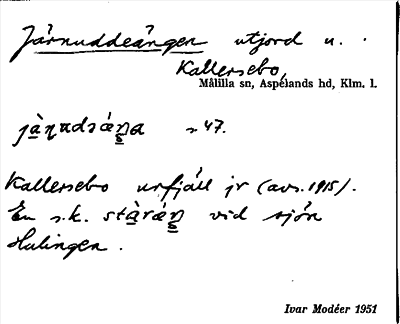 Järnuddeängen utjord u.
Kallersebo,
Målilla sn, Aspelands hd, Klm. l.
s 47.
Kallersebo urfjäll jr (avs. 1915).
En s.k. vid sjön
Hulingen.
Ivar Modéer 1951